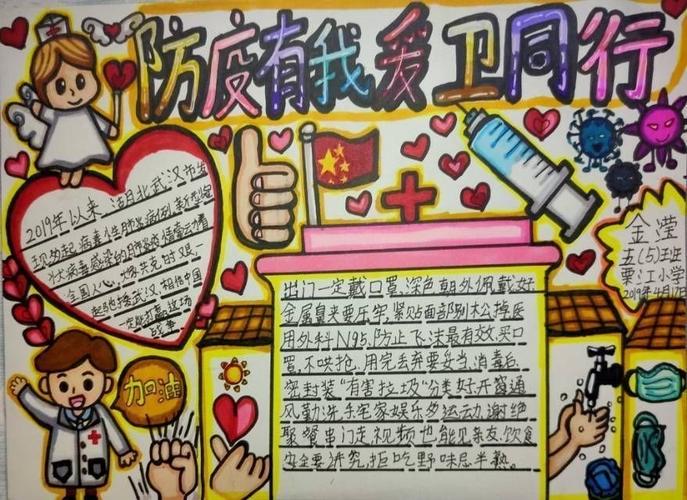 防疫有我爱卫同行
2019年以来,湖北武汉市发
现多起病毒性肺炎病例,新型冠
状病毒感染的肺炎疫情牵动着
全国人心,
起驰援武汉,相信中国
一定能打赢这场
战争
出门一定戴口罩,深色朝外佩戴好
金属鼻夹要压牢,紧贴面部别松掉医
用外科N95,防止飞沫最有效.买口
罩,不哄抢,用完丢弃要妥当.消毒后
密封装"有害垃圾"分类好开窗通
风勤洗手宅家娱乐多运动.谢绝
聚餐串门走,视频也能见亲友.饮食
安全要讲究,拒吃野味忌半熟。
加油
金滢
五(5)班
栗江小学